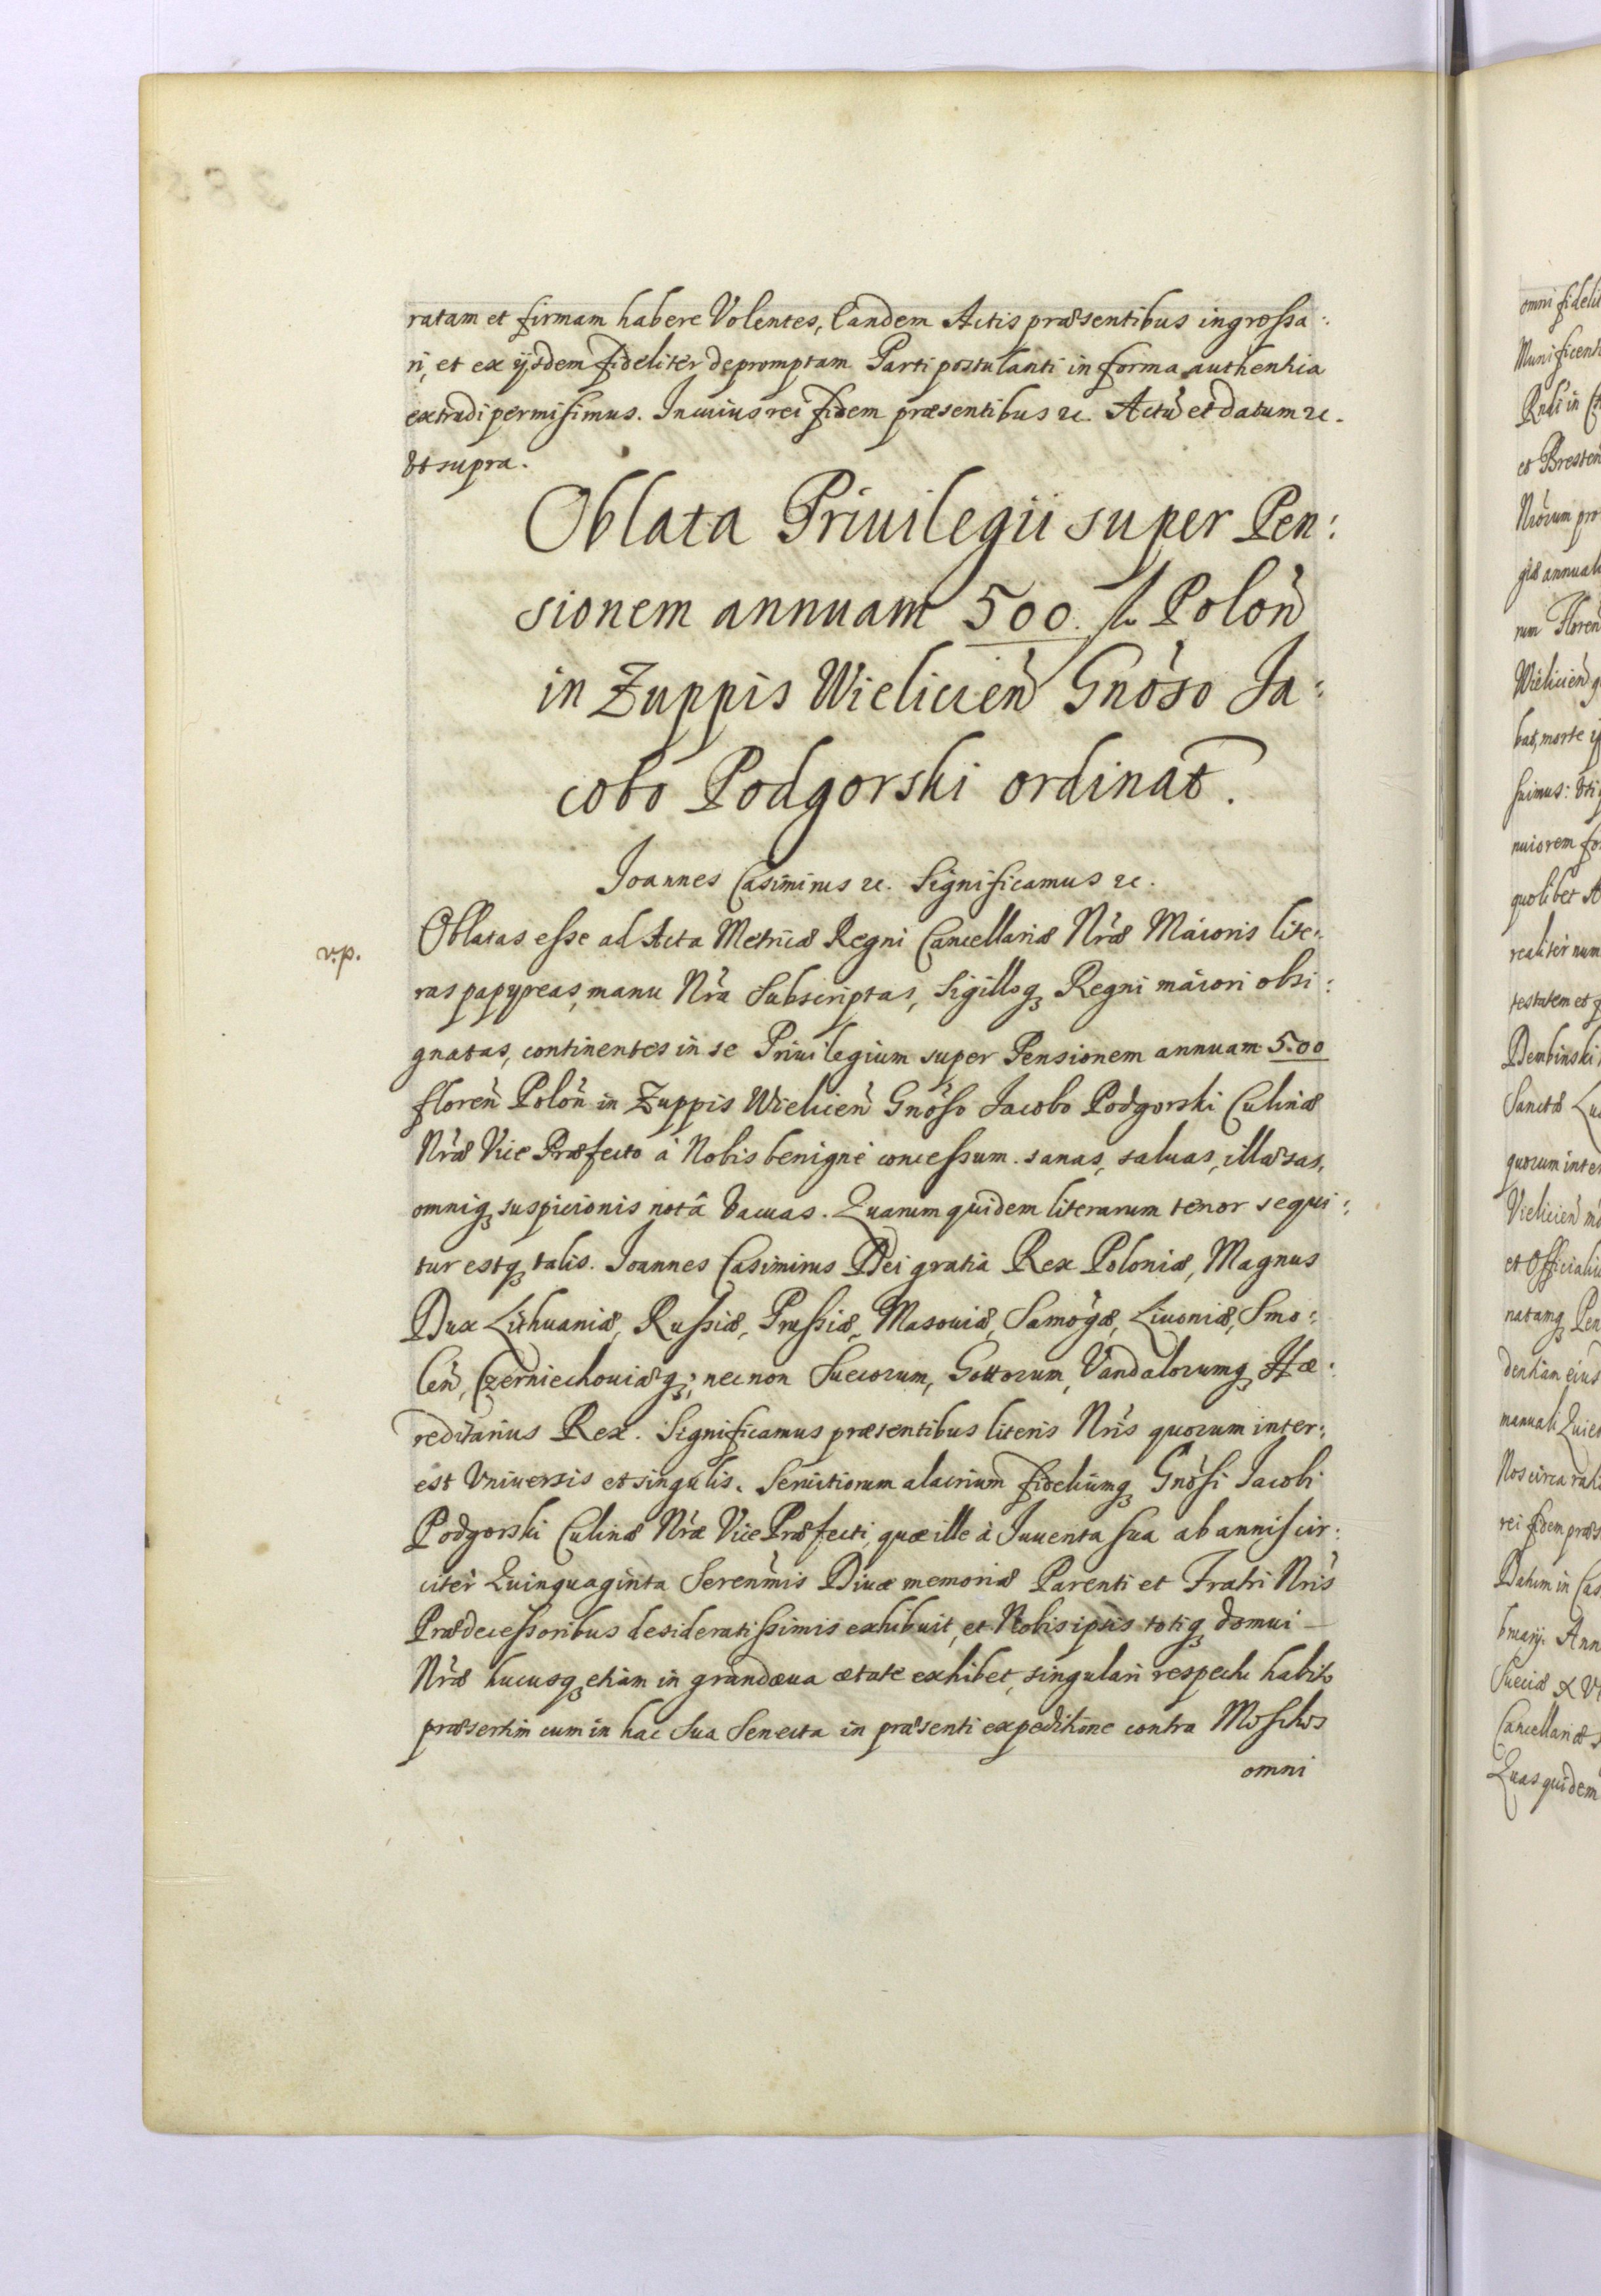 ratam et firmam habere Volentes, Eandem Actis præsentibus ingrossa:
ri, et ex ijsdem fideliter depromptam Parti postulanti in forma authentica
extradi permisimus. In cuius rei fidem præsentibus etc. Actũ et datum etc.
Vt supra.
Oblata Priuilegii super Pen:
sionem annuam 500. fl. Poloñ
in Zuppis Wielicieñ Gnoso Ja:
cobo Podgorski ordinat.
Joannes Casimirus etc. Significamus etc.
v.p.
Oblatas esse ad Acta Metricæ Regni Cancellariæ Nræ Maioris lite:
ras papyreas, manu Nra Subscriptas, Sigilloq3 Regni maiori obsi:
gnatas, continentes in se Priuilegium super Pensionem annuam 500
floreñ Poloñ in Zuppis Wielicieñ Gnoso Jacobo Podgorski Culinæ
Nræ Vice Præfecto à Nobis benignè concessum. sanas, saluas, illæsas,
omniq3 suspicionis notâ Vacuas. Quarum quidem literarum tenor sequi:
tur estq3 talis. Joannes Casimirus Dei gratia Rex Poloniæ, Magnus
Dux Lithuaniæ, Russiæ, Prussiæ, Masouiæ, Samogæ, Liuoniæ, Smo:
leñ, Czerniechouiæq3; necnon Suecorum, Gottorum, Vandalorumq3 Hæ:
reditarius Rex. Significamus præsentibus literis Nris quorum inter:
est Vniuersis et singulis. Seruitiorum alacrium fideliumq3 Gnosi Jacobi
Podgorski Culinæ Nræ Vice Præfecti, quæ ille à Juuenta sua ab annis cir:
citer Quinquaginta Serenmis Diuæ memoriæ Parenti et Fratri Nris
Prædecessoribus desideratissimis exhibuit, et Nobis ipsis totiq3 domui
Nræ hucusq3 etiam in grandæua ætate exhibet, singulari respectu habito
præsertim cum in hac Sua Senecta in præsenti expeditione contra Moschos
omni